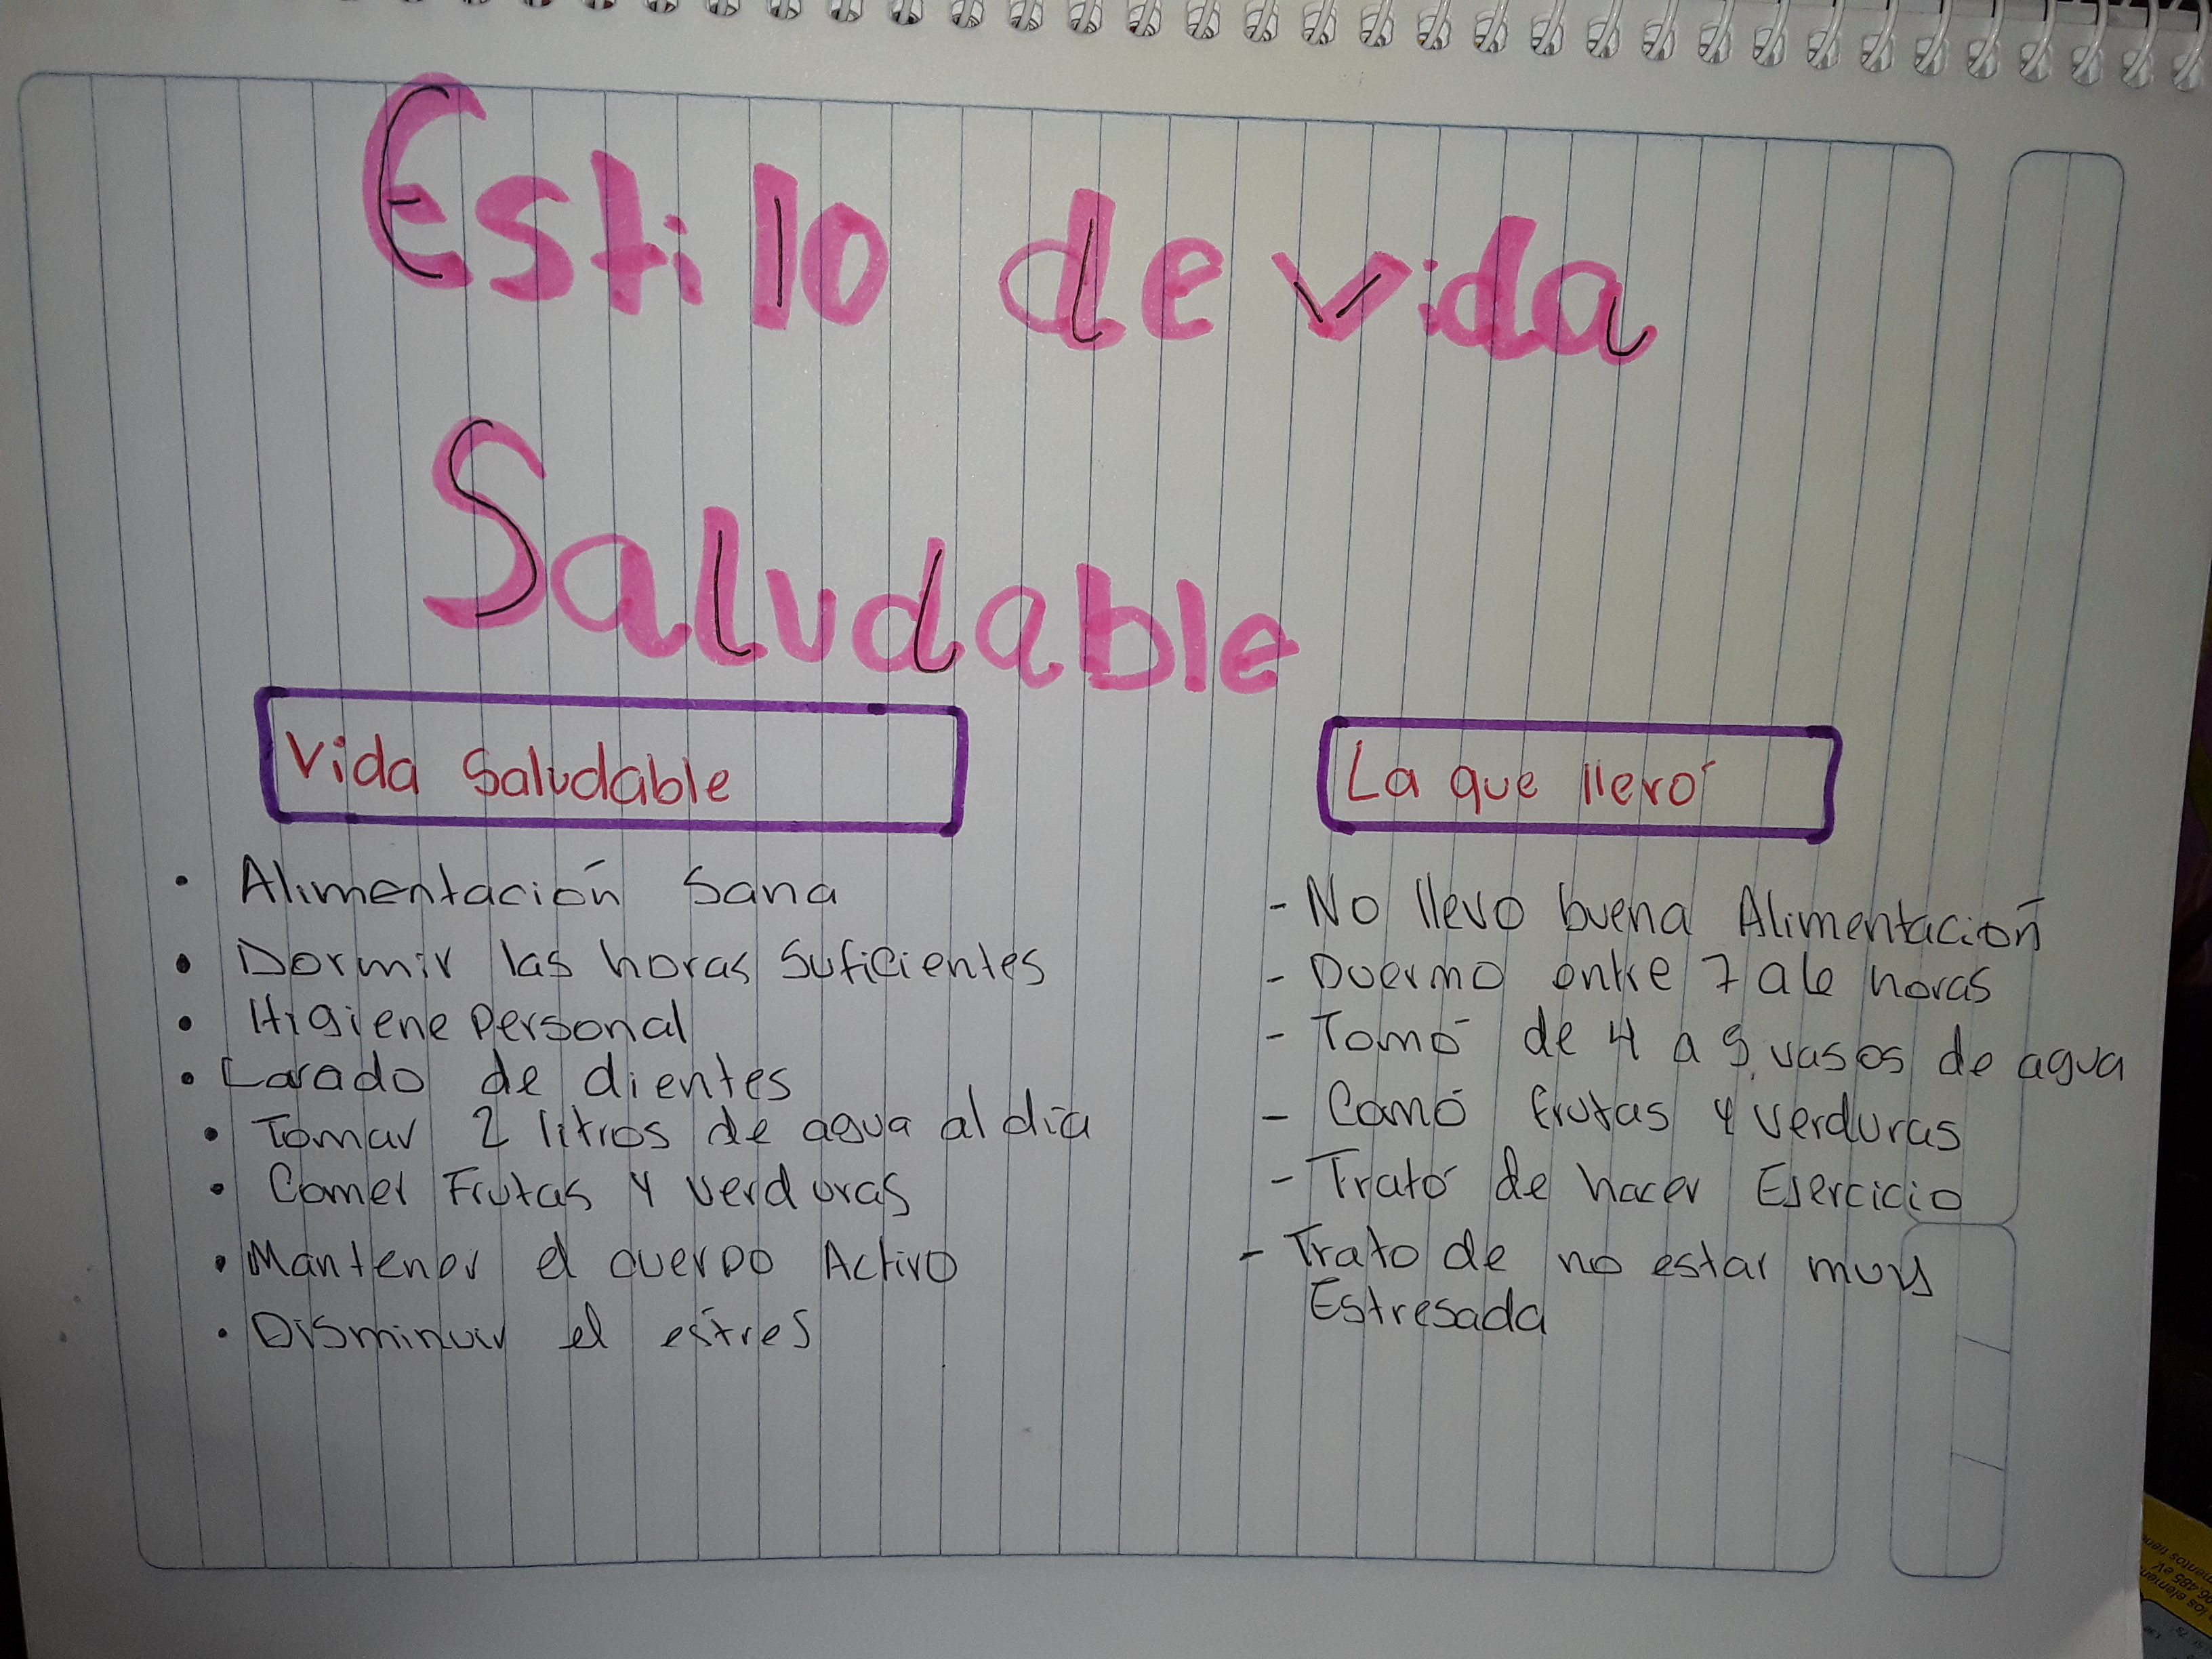 Estilo de vida
Saludable
Vida Saludable
• Alimentación Sana
• Dormir las horas Suficientes
• Higiene personal
• Lavado de dientes
• Tomar 2 litros de agua al día
• Comer Frutas y verduras
• Mantener el cuerpo Activo
• Disminuir el estres
La que llevó
- No llevo buena Alimentación
- Duermo entre 7 a 6 horas
- Tomó de 4 a 5 vasos de agua
- Comó frutas y verduras
- Trató de hacer Ejercicio
- Trato de no estar muy
Estresada